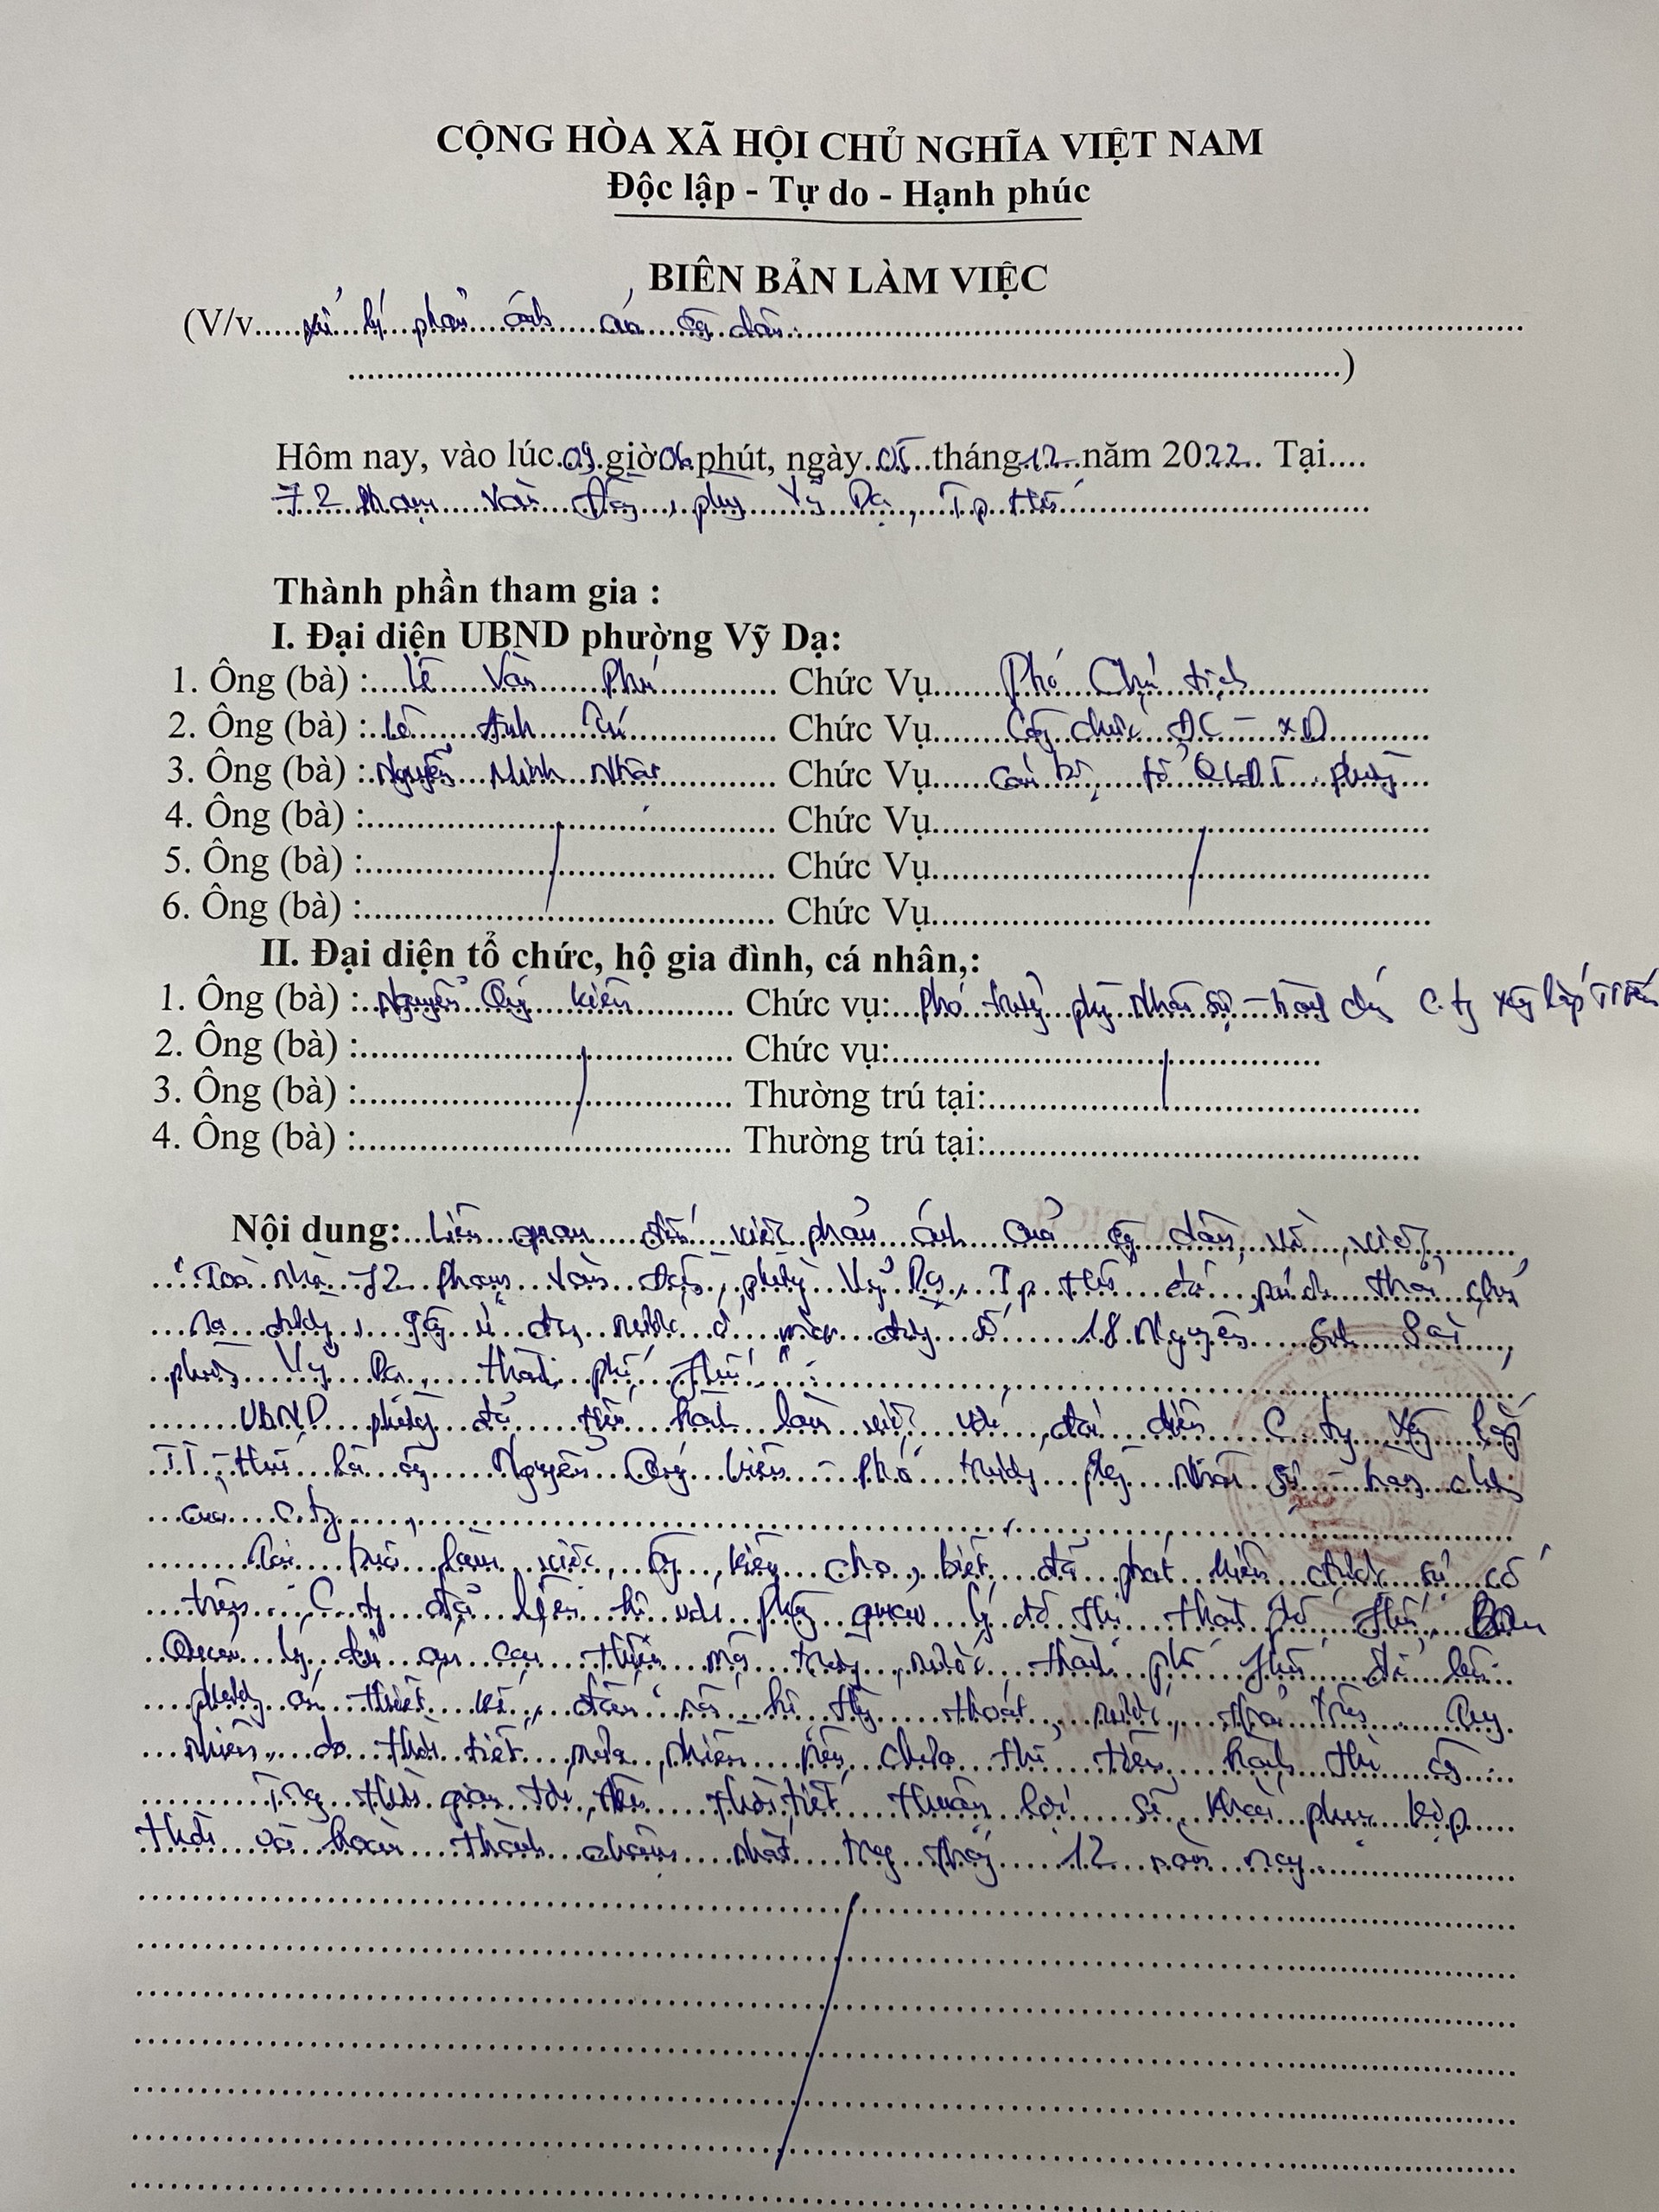 CỘNG HÒA XÃ HỘI CHỦ NGHĨA VIỆT NAM
Độc lập - Tự do - Hạnh phúc
BIÊN BẢN LÀM VIỆC
(V/v.....xử lý phản ánh của công dân.....
.....)
Hôm nay, vào lúc 09 giờ 00 phút, ngày 05 tháng 12 năm 2022. Tại....
72 Phạm Văn Đồng, phường Vỹ Dạ, Tp Huế
Thành phần tham gia :
I. Đại diện UBND phường Vỹ Dạ:
1. Ông (bà) : Lê Văn Phú Chức Vụ Phó Chủ tịch
2. Ông (bà) : Lê Anh Trí Chức Vụ Công chức ĐC - XD
3. Ông (bà) : Nguyễn Minh Nhân Chức Vụ Cán bộ tổ QLĐT phường
4. Ông (bà) : Chức Vụ
5. Ông (bà) : Chức Vụ
6. Ông (bà) : Chức Vụ
II. Đại diện tổ chức, hộ gia đình, cá nhân,:
1. Ông (bà) : Nguyễn Quý Kiên Chức vụ: Phó trưởng phòng Nhân sự - hành chính C.ty Xây lắp TT Huế
2. Ông (bà) : Chức vụ:
3. Ông (bà) : Thường trú tại:
4. Ông (bà) : Thường trú tại:
Nội dung: Liên quan đến việc phản ánh của công dân về việc
"Toà nhà 72 Phạm Văn Đồng, phường Vỹ Dạ, Tp Huế thải chảy
ra đường, gây ứ đọng nước ở mặn đường số 18 Nguyễn Sinh
phường Vỹ Dạ, thành phố Huế":
UBND phường đã tiến hành làm việc với đại diện C.ty Xây lắp
TT-Huế là ông Nguyễn Quý Kiên - Phó trưởng phòng Nhân sự - hành chính
của C.ty
Tại buổi làm việc, ông Kiên cho biết đã phát hiện được sự cố
trên. C.ty đã liên hệ với phòng quản lý đô thị thành phố Huế, Ban
Quản lý dự án cải thiện môi trường nước thành phố Huế để lên
phương án thiết kế, đấu nối hệ thống thoát nước thải trên. Tuy
nhiên, do thời tiết mưa nhiều nên chưa thể tiến hành thi công
Trong thời gian tới, thời tiết thuận lợi sẽ khắc phục kịp
thời và hoàn thành chậm nhất trong tháng 12 năm nay.